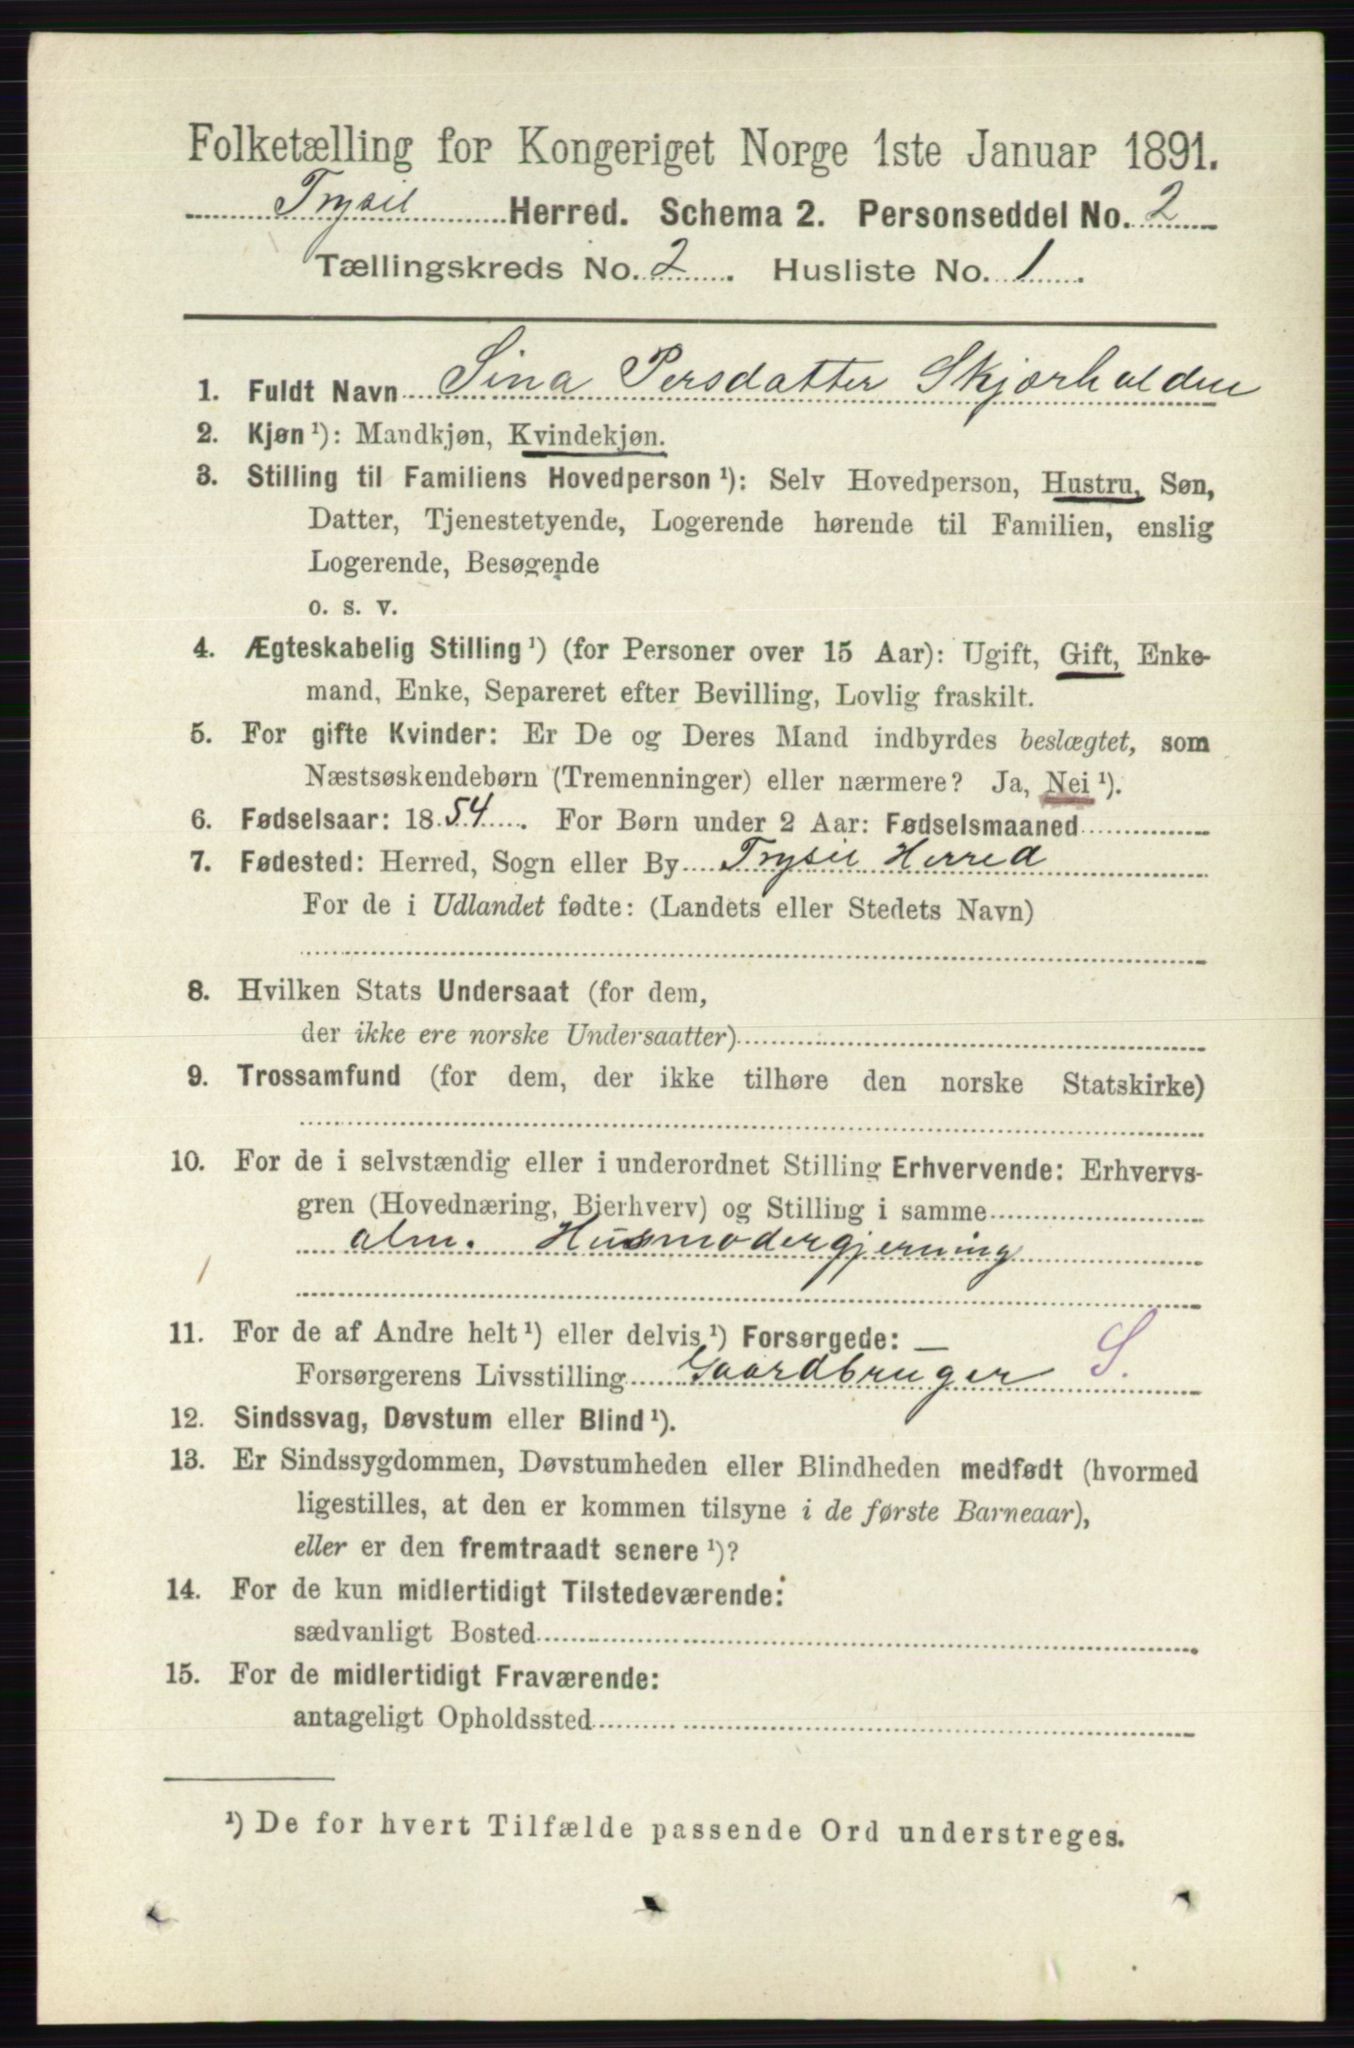 Folketælling for Kongeriget Norge 1ste Januar 1891.
Trysil Herred. Schema 2. Personseddel No. 2
Tællingskreds No. 2. Husliste No. 1.
1. Fuldt Navn Sina Persdatter Skjærhalden
2. Kjøn ¹): Mandkjøn, Kvindekjøn.
3. Stilling til Familiens Hovedperson ¹): Selv Hovedperson, Hustru, Søn,
Datter, Tjenestetyende, Logerende hørende til Familien, enslig
Logerende, Besøgende
o. s. v.
4. Ægteskabelig Stilling ¹) (for Personer over 15 Aar): Ugift, Gift, Enke-
mand, Enke, Separeret efter Bevilling, Lovlig fraskilt.
5. For gifte Kvinder: Er De og Deres Mand indbyrdes beslægtet, som
Næstsøskendebørn (Tremenninger) eller nærmere? Ja, Nei ¹).
6. Fødselsaar: 1854. For Børn under 2 Aar: Fødselsmaaned
7. Fødested: Herred, Sogn eller By Trysil Herred
For de i Udlandet fødte: (Landets eller Stedets Navn)
8. Hvilken Stats Undersaat (for dem,
der ikke ere norske Undersaatter)
9. Trossamfund (for dem, der ikke tilhøre den norske Statskirke)
10. For de i selvstændig eller i underordnet Stilling Erhvervende: Erhvervs-
gren (Hovednæring, Bierhverv) og Stilling i samme
alm. Husmodergjerning
11. For de af Andre helt ¹) eller delvis ¹) Forsørgede: —
Forsørgerens Livsstilling Gaardbruger S.
12. Sindssvag, Døvstum eller Blind ¹).
13. Er Sindssygdommen, Døvstumheden eller Blindheden medfødt (hvormed
ligestilles, at den er kommen tilsyne i de første Barneaar),
eller er den fremtraadt senere ¹)?
14. For de kun midlertidigt Tilstedeværende:
sædvanligt Bosted
15. For de midlertidigt Fraværende:
antageligt Opholdssted
¹) De for hvert Tilfælde passende Ord understreges.